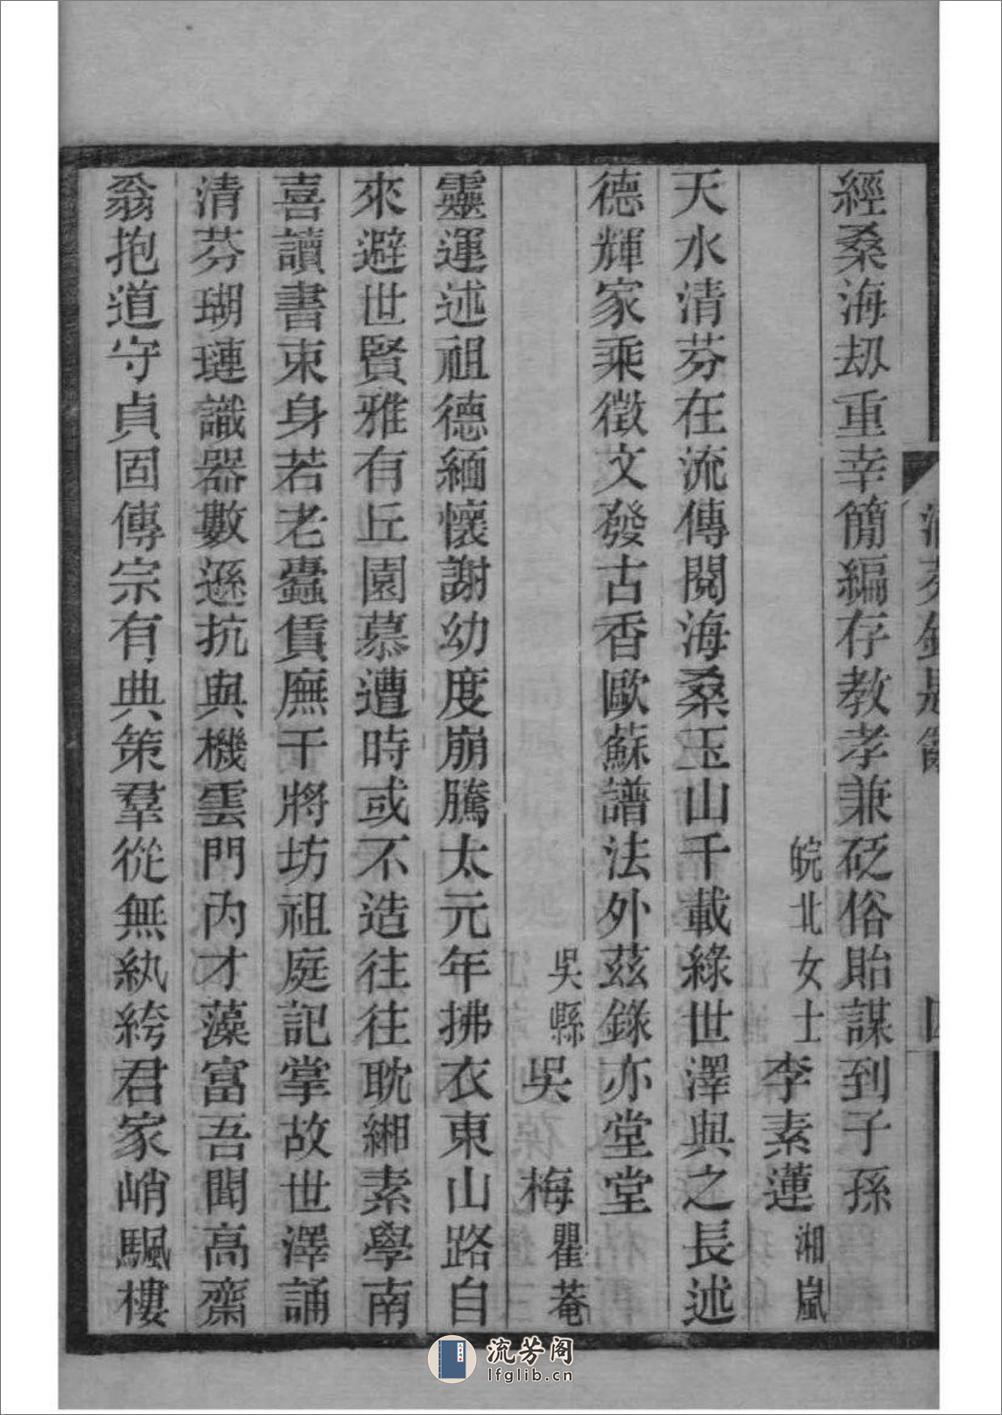 經桑海刼重幸簡編存教孝兼砭俗貽謀到子孫
皖北女士李素蓮湘嵐
天水清芬在流傳閱海桑玉山千載綠世澤與之長述
德輝家乘徵文發古香歐蘇譜法外茲錄亦堂堂
吳縣吳梅瞿菴
靈運述祖德緬懷謝幼度崩騰太元年拂衣東山路自
來避世賢雅有丘園慕遭時或不造往往耽緗素學南
喜讀書束身若老蠹賃廡干將坊祖庭記掌故世澤誦
清芬瑚璉識器數遜抗與機雲門內才藻富吾聞高齋
翁抱道守貞固傳宗有典策羣從無紈綺君家峭颿樓
流芳阁
lfglib.cn